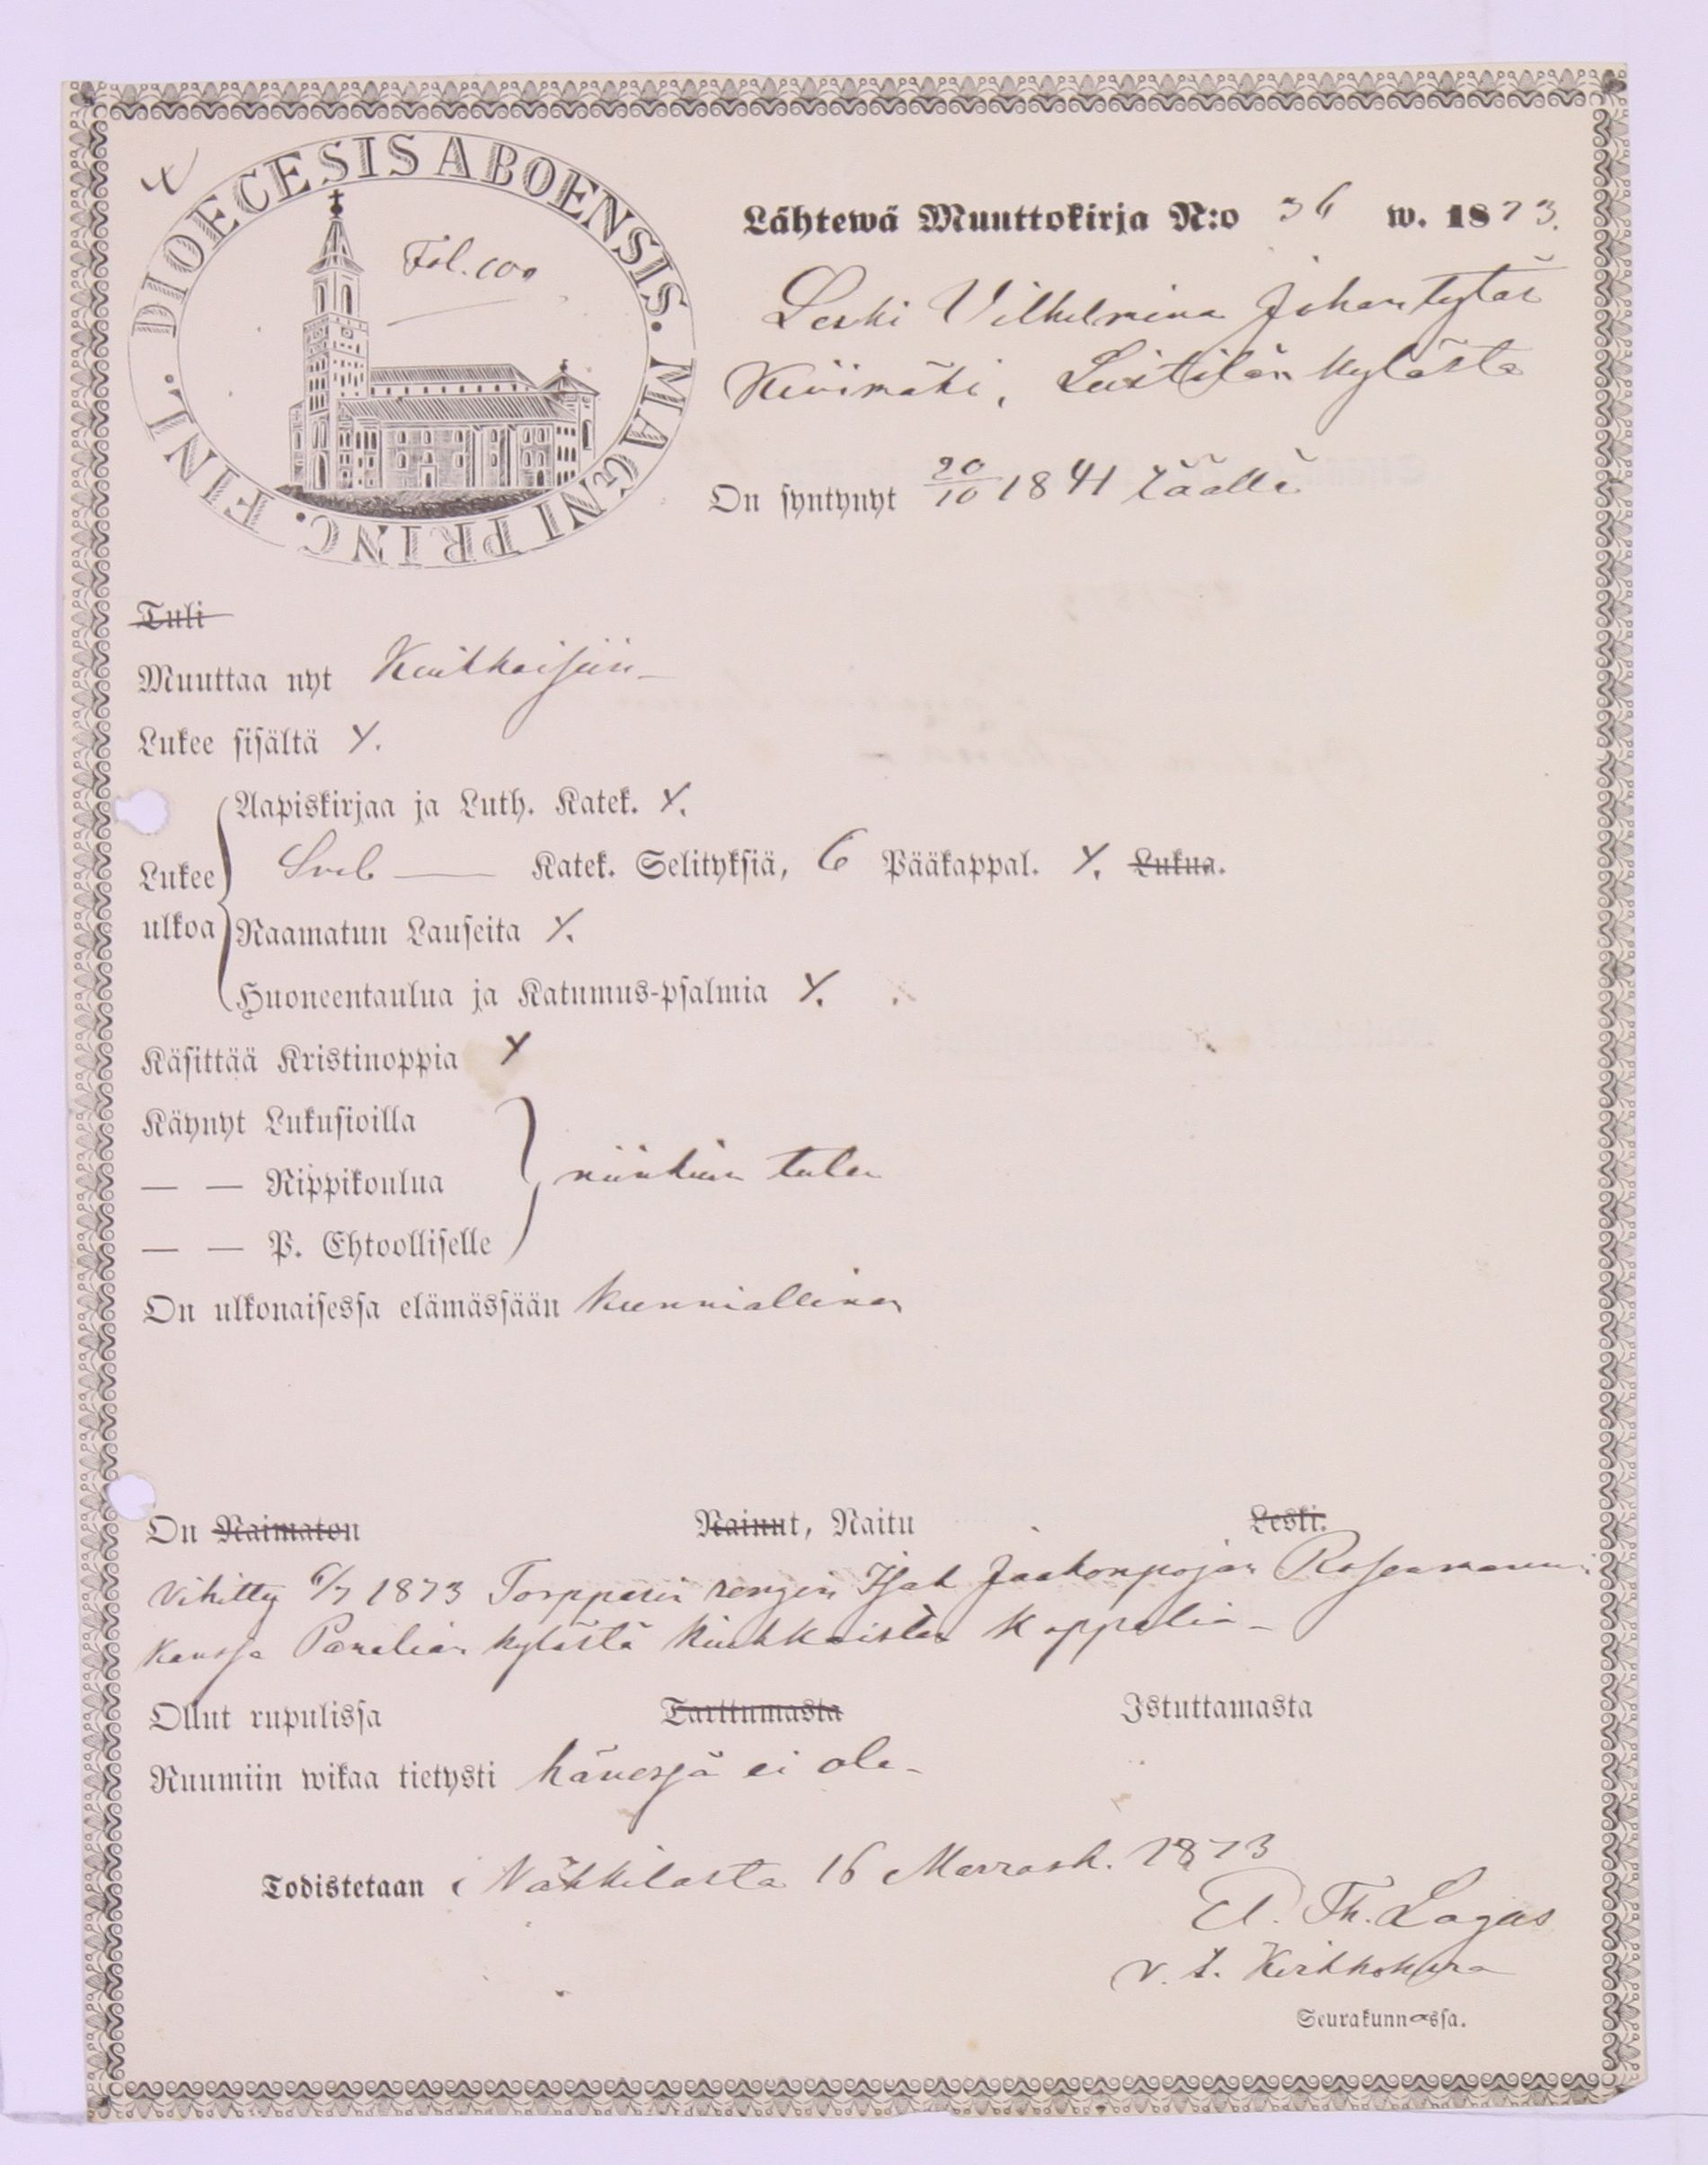 DIOECESIS ABOENSIS. MAGNI PRINC. FINL.
Fol. 100
Lähtewä Muuttokirja N:o 36 w. 1873.
Leski Vilhelmina Johantytär
Kivimäki, Leistilän kylästä
On syntynyt 20/10 1841 täällä
Tuli
Muuttaa nyt Kiukkaisiin
Lukee sisältä X.
Aapiskirjaa ja Luth. Katek. X.
Lukee ulkoa Sveb — Katek. Selityksiä, 6 Pääkappal. X. Lukua.
Raamatun Lauseita X.
Huoneentaulua ja Katumus-psalmia X.
Käsittää Kristinoppia X
Käynyt Lukusioilla
— — Rippikoulua niinkuin tulee
— — P. Ehtoolliselle
On ulkonaisessa elämässään kunniallinen
On Naimaton Nainut, Naitu Leski.
Vihitty 6/7 1873 Torpparin rengin Isak Jaakonpojan
kanssa Panelian kylästä Kiukkaisten Kappelia
Ollut rupulissa Tarttumasta Istuttamasta
Ruumiin wikaa tietysti hänessä ei ole
Todistetaan Nakkilasta 16 Marrask. 1873
Th. Lagus
v. t. Kirkkoherra
Seurakunnassa.